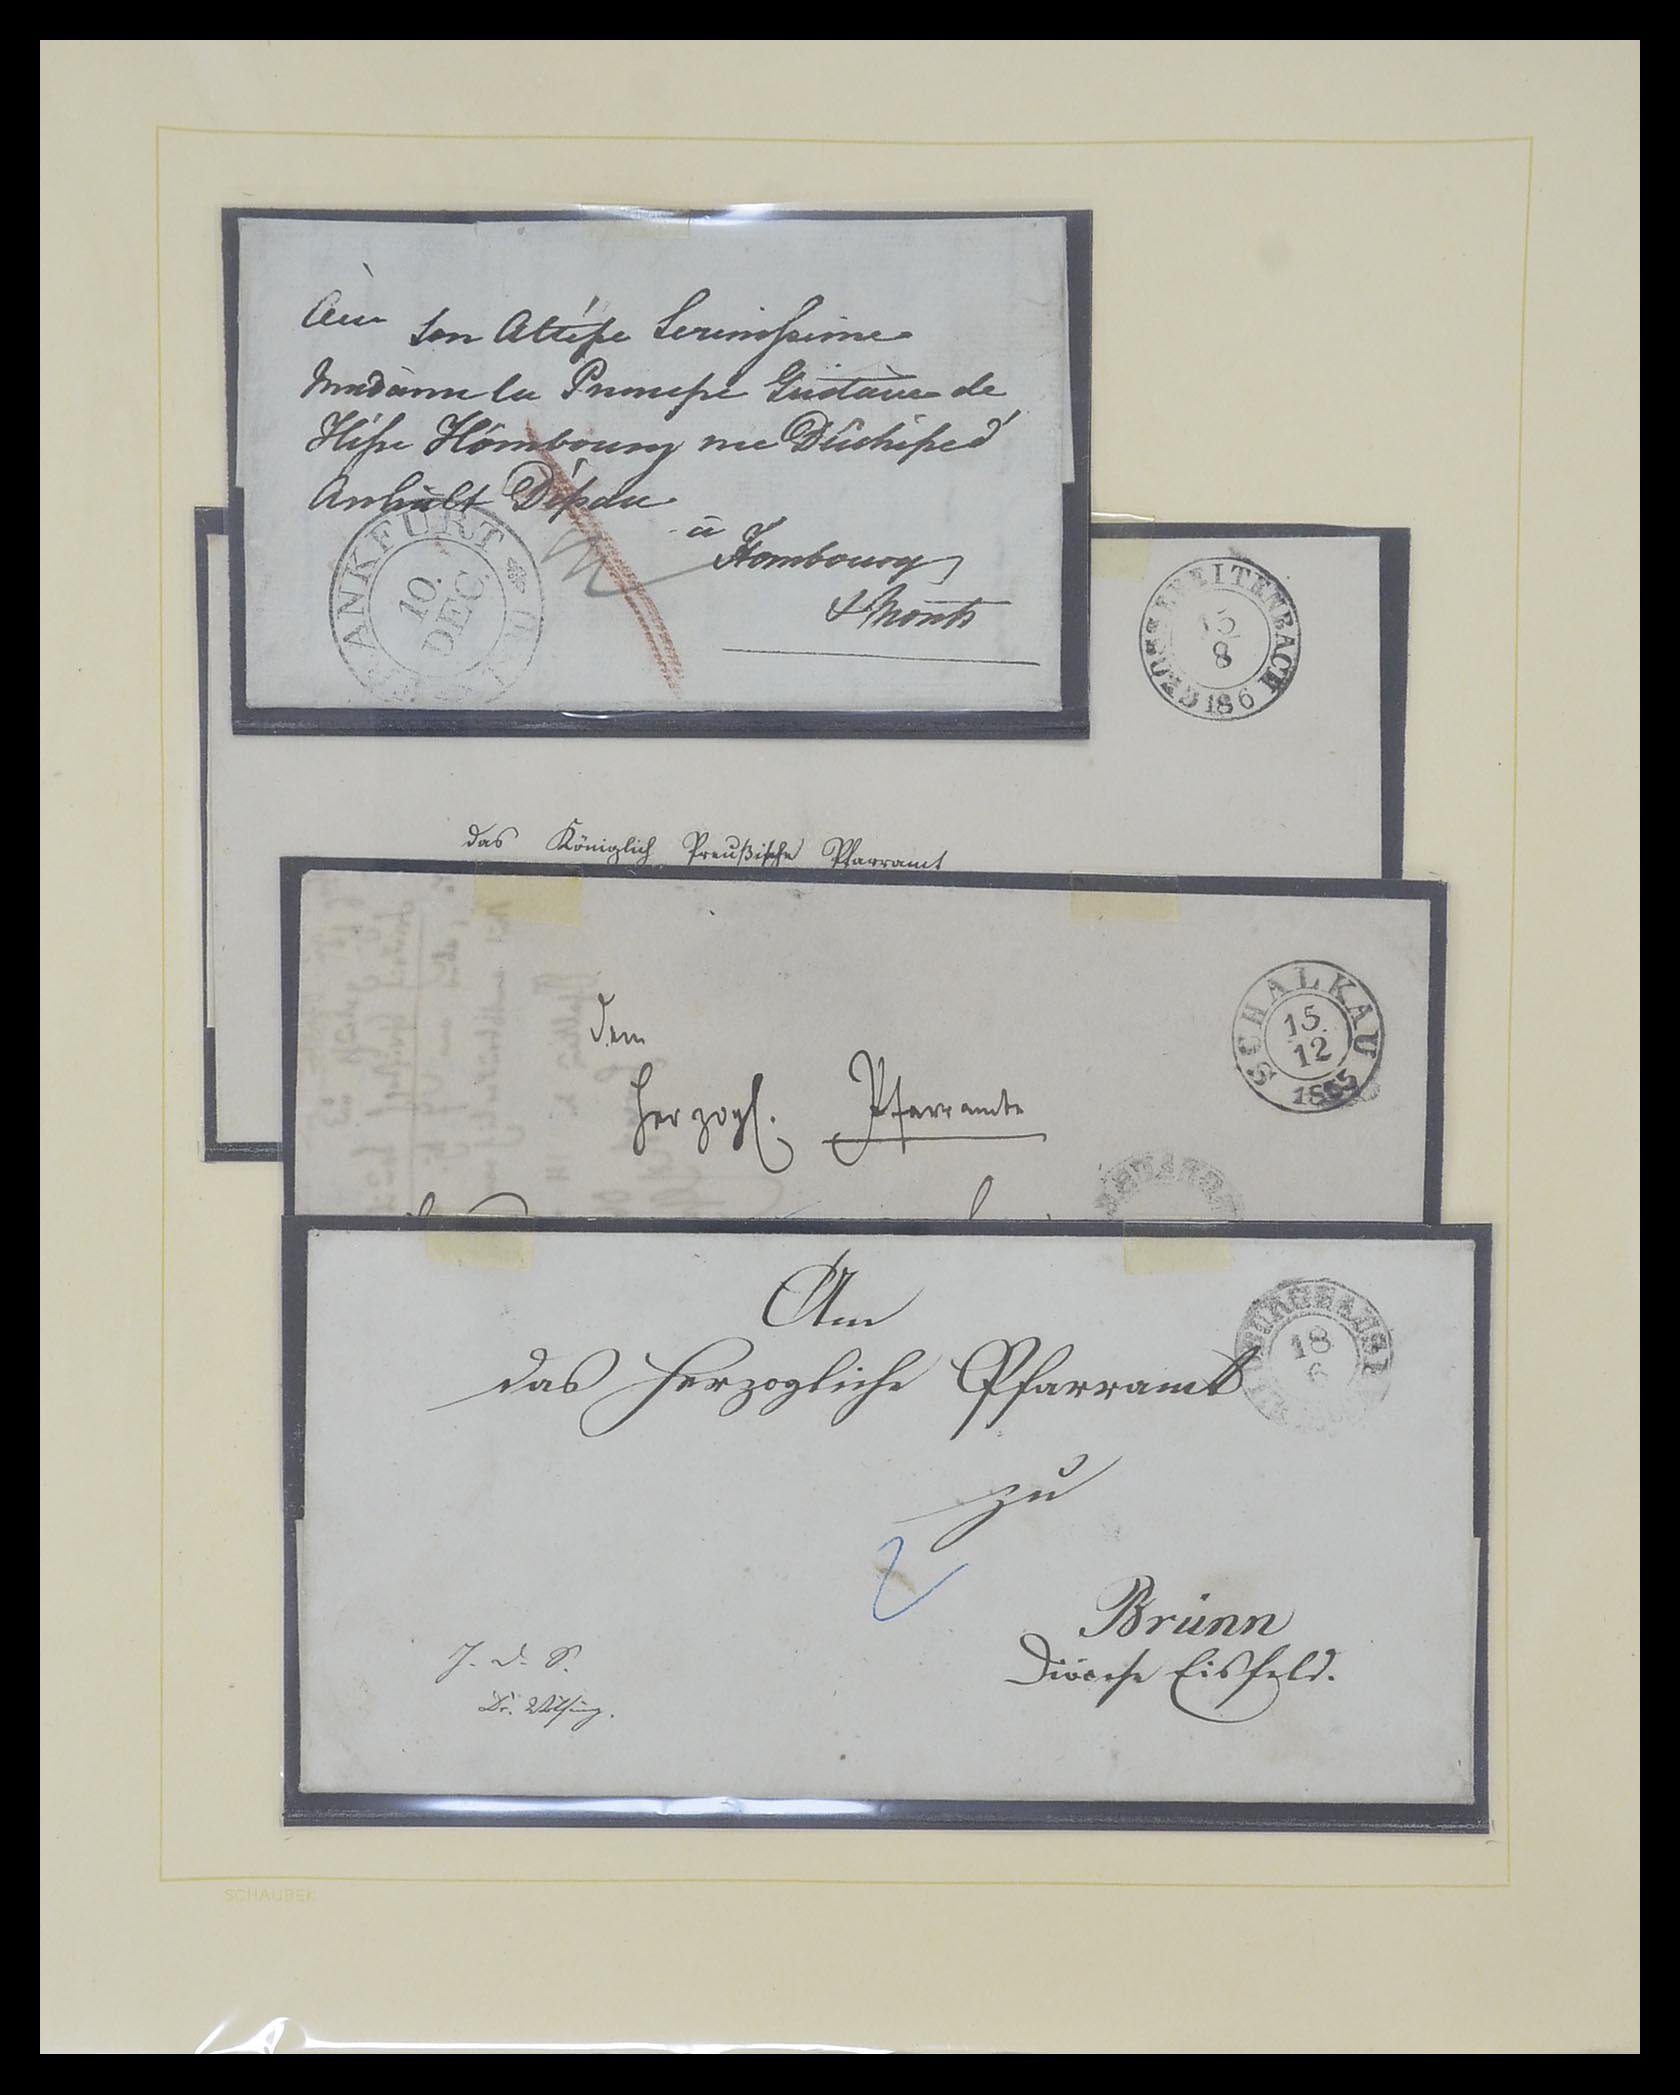 Son Altesse Serenissime
Madame la Princesse Gustave de
Hesse Hombourg née Duchesse d'
Anhalt Dessau
à
Hombourg
FRANKFURT
10.
DEC.
BREITENBACH
8
186
das Königlich Preußische Pfarramt
dem
Herzogl. Pfarramte
SCHALKAU
15
12
1865
An
das Herzogliche Pfarramt
zu
Brünn
Diöcese Eisfeld.
18
6
2
J. d. S.
SCHAUBEK